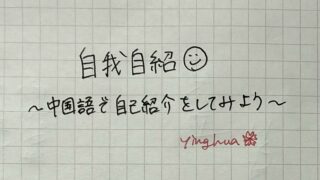 自我自紹☺
～中国語で自己紹介をしてみよう～
Yinghua🌸